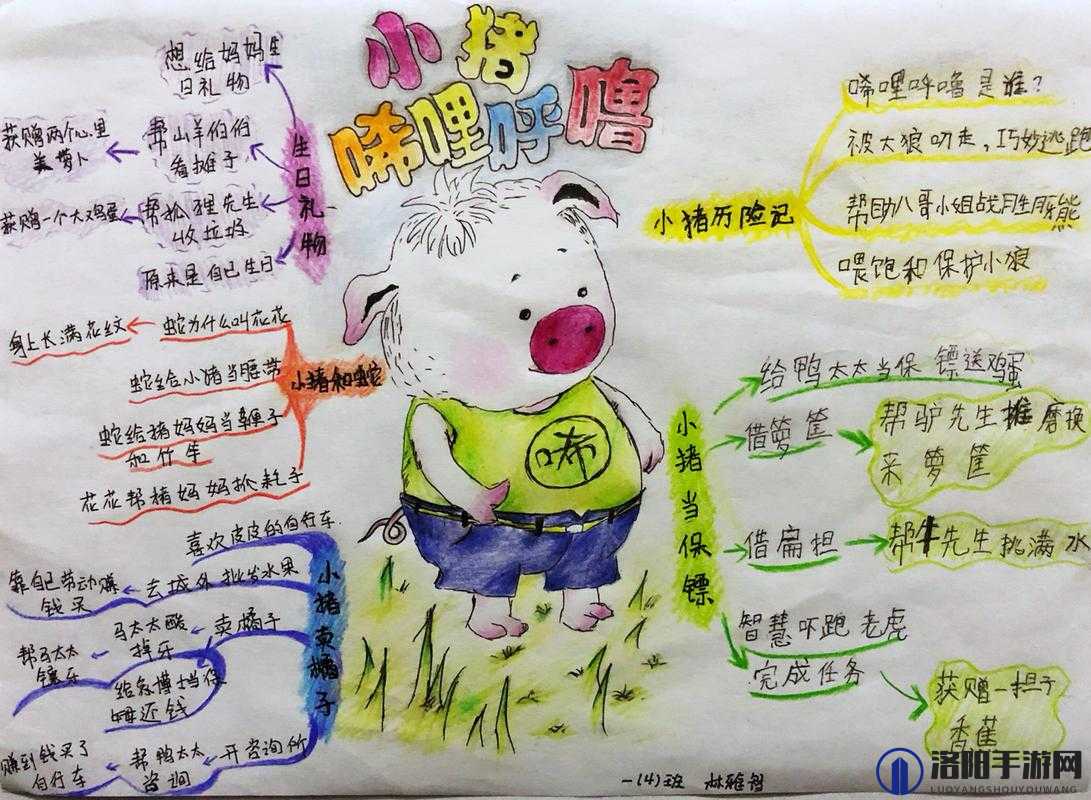 小猪
唏哩呼噜
想给妈妈生
日礼物
帮山羊伯伯
看摊子
获赠两个心里
美萝卜
帮狐狸先生
收垃圾
获赠一个大鸡蛋
原来是自己生日
生日礼物
小猪历险记
唏哩呼噜是谁?
被大狼叼走,巧妙逃跑
帮助八哥小姐战胜豚熊
喂饱和保护小狼
小猪和蛇
蛇为什么叫花花
身上长满花纹
蛇给小猪当腰带
蛇给猪妈妈当鞭子
和竹竿
花花帮猪妈妈抓耗子
小猪当保镖
给鸭太太当保镖送鸡蛋
借箩筐
帮驴先生推磨换
来箩筐
借扁担
帮牛先生挑满水
智慧吓跑老虎
完成任务
获赠一担子
香蕉
小猪卖橘子
喜欢皮皮的自行车.
去城外批发水果
靠自己劳动赚
钱买
卖橘子
马太太酸
掉牙
帮马太太
镶牙
给象博士当保
姆还钱
开咨询所
帮鸭太太
咨询
赚到钱买了
自行车
唏
一(4)班 林雅智
洛阳手游网
LUOYANGSHOUYOUWANG